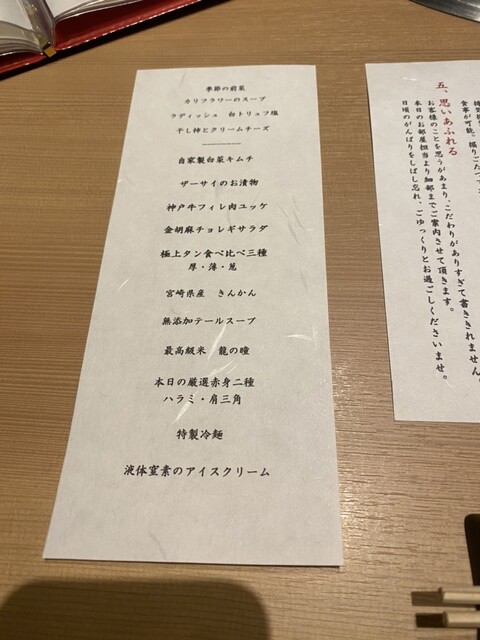 季節の前菜
カリフラワーのスープ
ラディッシュ 白トリュフ塩
干し柿とクリームチーズ
自家製白菜キムチ
ザーサイのお漬物
神戸牛フィレ肉ユッケ
金胡麻チョレギサラダ
極上タン食べ比べ三種
厚・薄・葱
宮崎県産 きんかん
無添加テールスープ
最高級米 龍の瞳
本日の厳選赤身二種
ハラミ・肩三角
特製冷麺
液体窒素のアイスクリーム
五、思いあふれる
お客様のことを思うがあまり、こだわりがありすぎて書ききれません。
本日のお部屋担当より細部までご案内させて頂きます。
日頃のがんばりをしばし忘れ、ごゆっくりとお過ごしくださいませ。